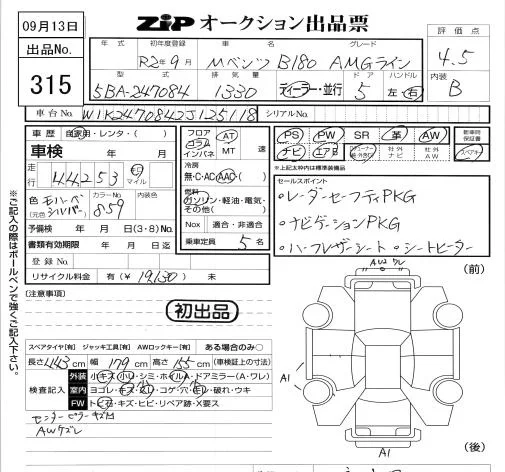 09月13日
ZiP オークション出品票
出品No.
315
年式 初年度登録 車名 グレード
R2年9月 Mベンツ B180 AMGライン
型式 排気量 ドア ハンドル
5BA-247084 1330 ディーラー・並行 5 左・右
評価点
4.5
内装
B
車台No. W1K2470842J125118 シリアルNo.
車歴 自家用・レンタ・( )
車検 年 月
走行 44253 km マイル
色 モハーベシルバー (元色) カラーNo. 859 内装色
予備検 年 月 日(3・8)No.
書類有効期限 年 月 日迄
登録No.
リサイクル料金 有(¥19,130) 未
フロア コラム インパネ AT MT 速
冷房 無・C・AC・AAC・( )
燃料 ガソリン・軽油・電気・その他( )
Nox 適合・非適合
乗車定員 5 名
PS PW SR 革 AW
ナビ エアB 社外ナビ 社外AW
新車時保証書
スペアキー
*上記太枠内は標準装備品
セールスポイント
・レーダーセーフティPKG
・ナビゲーションPKG
・ハーフレザーシート ・シートヒーター
※ご記入の際はボールペンで強くご記入下さい。
(注意事項)
初出品
スペアタイヤ[有] ジャッキ工具[有] AWロックキー[有] ある場合のみ○
長さ 443 cm 幅 179 cm 高さ 155 cm (車検証上の寸法)
検査記入
外装 小キズ・小凹・シミ・ホイルA・ドアミラー(A・ワレ)
室内 ヨゴレ・キズ・スレ・コゲ・穴・キレ・破れ・ウキ
FW トビ石・キズ・ヒビ・リペア跡・X要ス
センターピラーキズ凹
AWズレ
(前)
AW2 ワレ
A1
A1
(後)